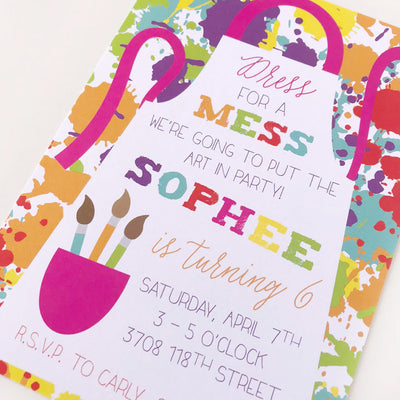 Dress
FOR A
MESS
WE'RE GOING TO PUT THE
ART IN PARTY!
SOPHEE
is turning 6
SATURDAY, APRIL 7TH
3 - 5 O'CLOCK
3708 118TH STREET
R.S.V.P. TO CARLY